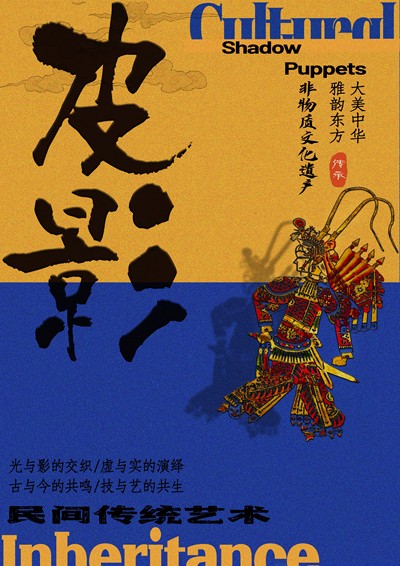 Cultural
Shadow
Puppets
皮影
大美中华
雅韵东方
非物质文化遗产
传承
光与影的交织/虚与实的演绎
古与今的共鸣/技与艺的共生
民间传统艺术
Inheritance